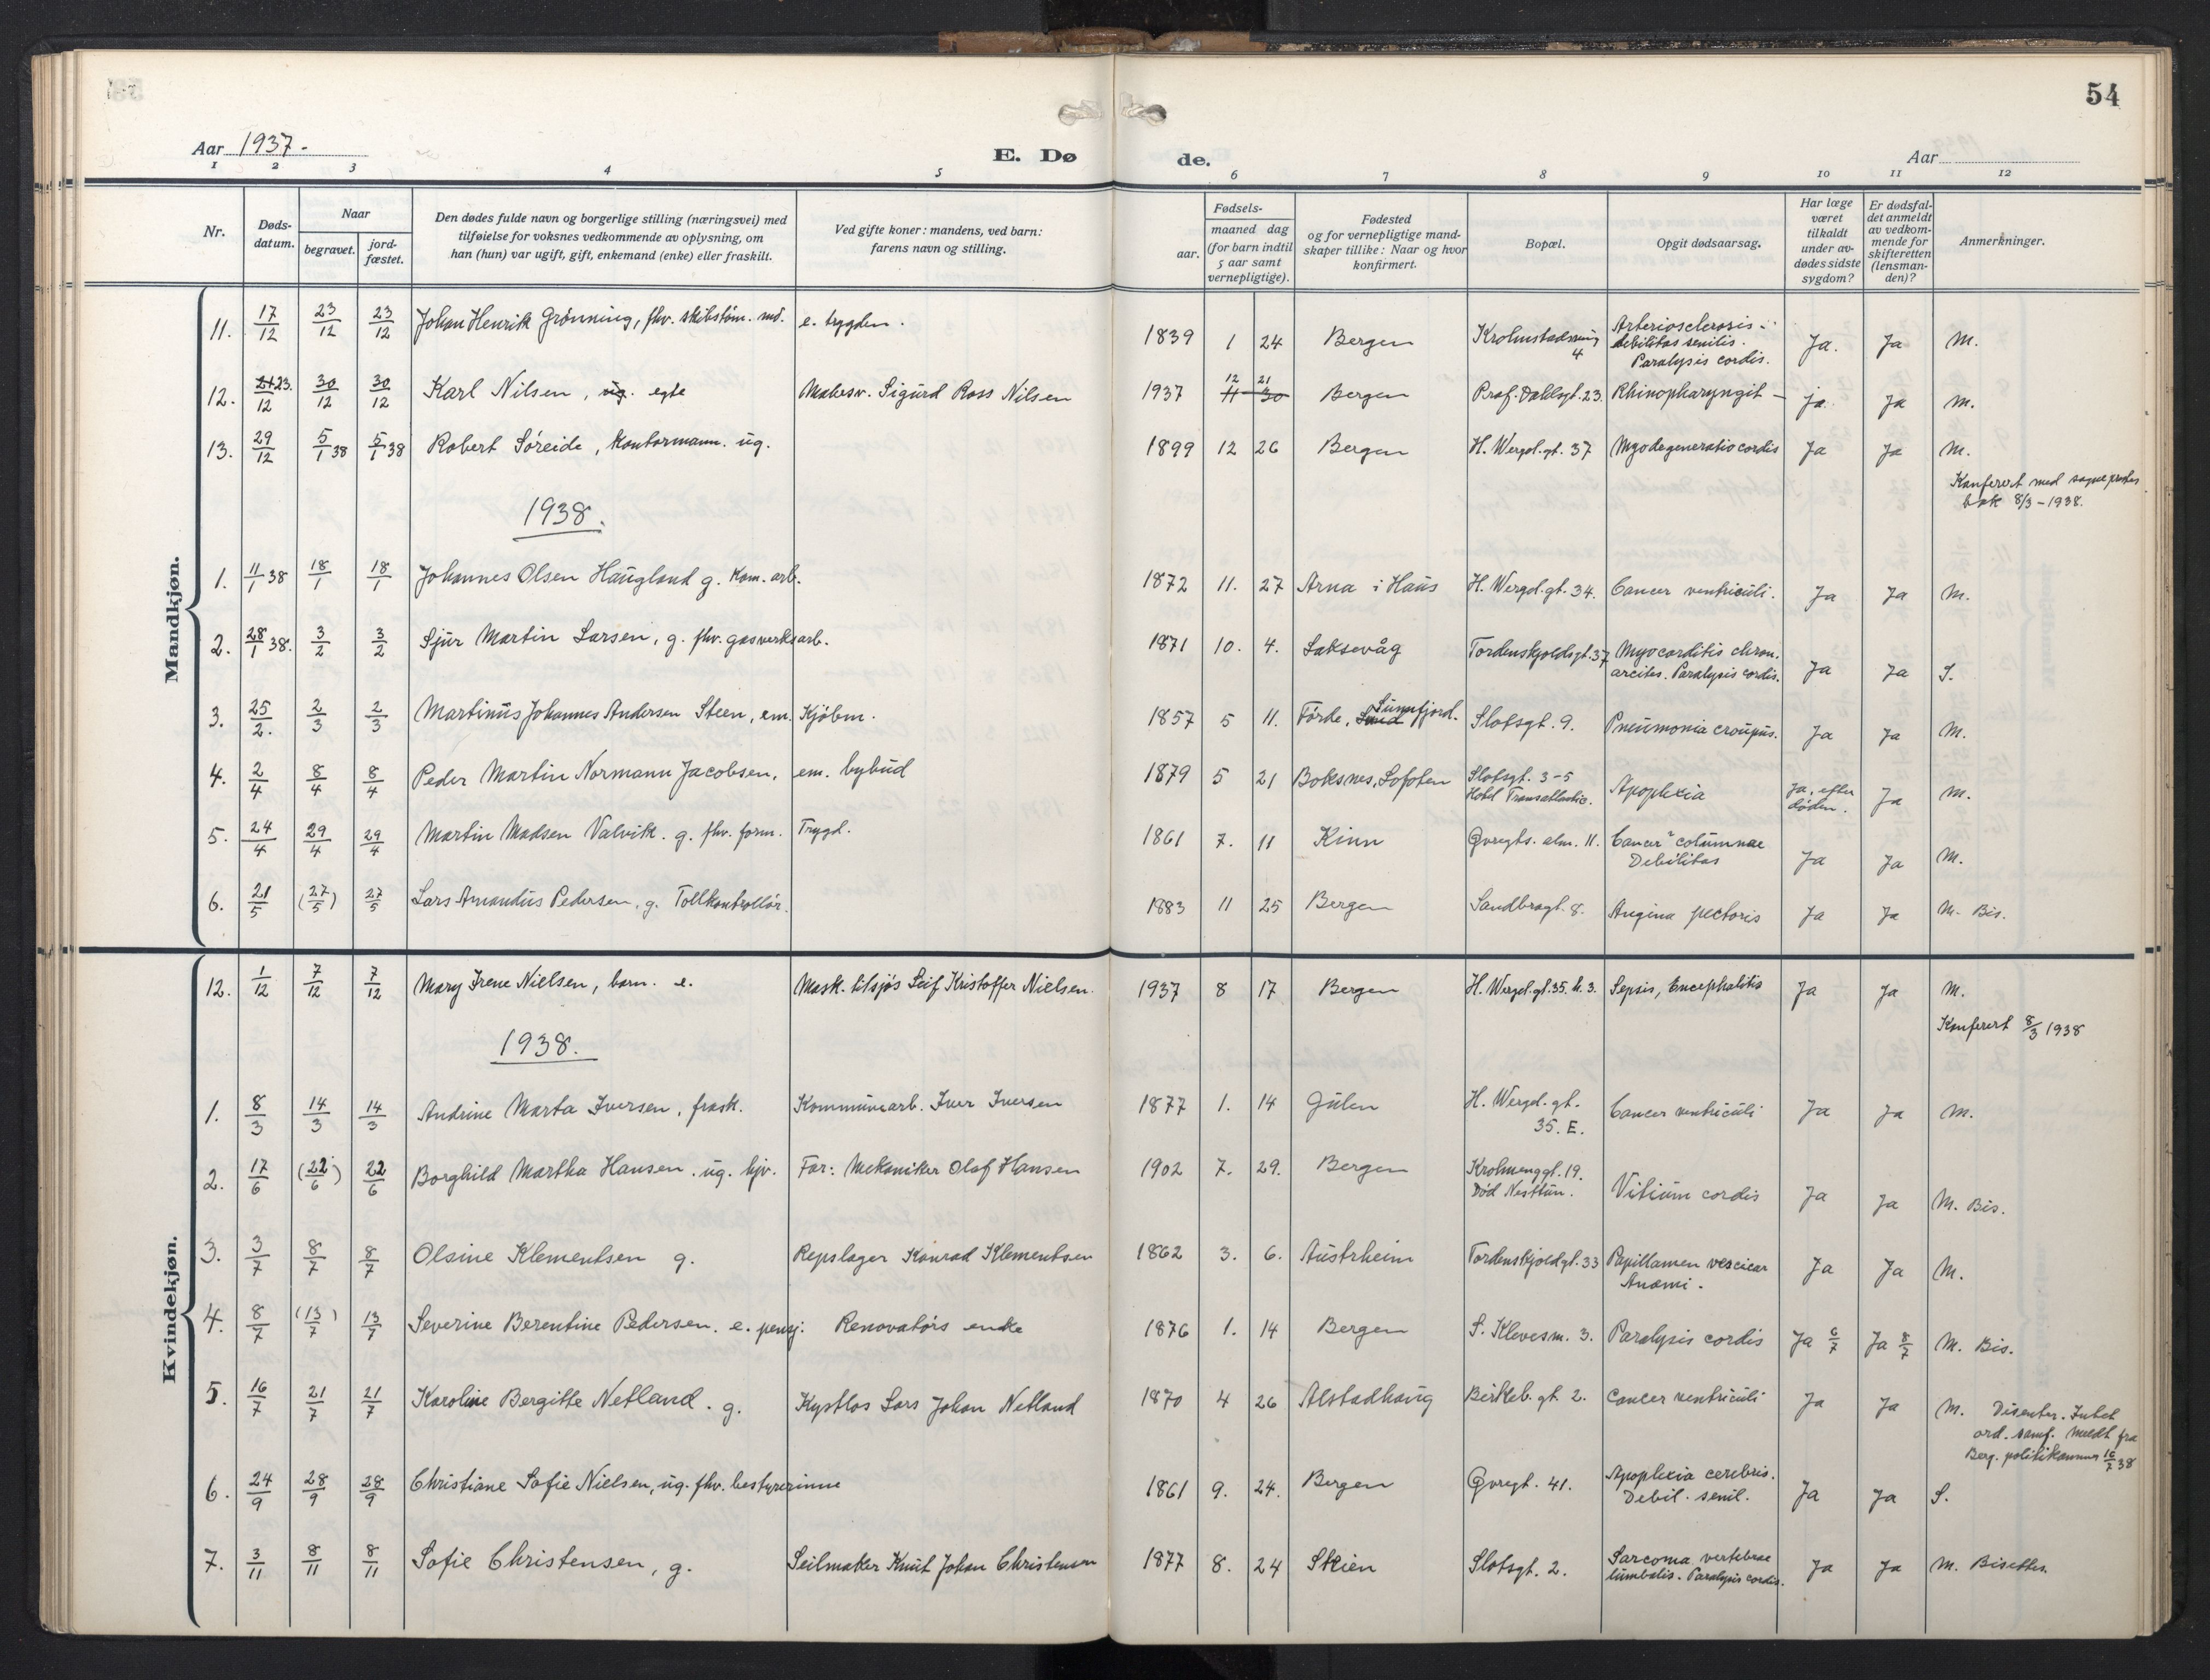 54
Aar 1937.-
E. Dø de.
Aar
1 2 3 4 5 6 7 8 9 10 11 12
Nr.
Døds-
datum.
Naar
begravet.
jord-
fæstet.
Den dødes fulde navn og borgerlige stilling (næringsvei) med
tilføielse for voksnes vedkommende av oplysning, om
han (hun) var ugift, gift, enkemand (enke) eller fraskilt.
Ved gifte koner: mandens, ved barn:
farens navn og stilling.
Fødsels-
aar.
maaned dag
(for barn indtil
5 aar samt
vernepligtige).
Fødested
og for vernepligtige mand-
skaper tillike: Naar og hvor
konfirmert.
Bopæl.
Opgit dødsaarsag.
Har læge
været
tilkaldt
under av-
dødes sidste
sygdom?
Er dødsfal-
det anmeldt
av vedkom-
mende for
skifteretten
(lensman-
den)?
Anmerkninger.
Mandkjøn.
11. 17/12 23/12 23/12 Johan Henrik Grønning, fhv. skibstøm. e. trygden. 1839 1 24 Bergen 4 Arteriosclerosis - debilitas senilis. Paralysis cordis. Ja. Ja M.
12. 23/12 30/12 30/12 Karl Nilsen, ug. egte Sigurd Ross Nilsen 1937 12 21 11 30 Bergen Prof. Dahlsgt. 23. Rhinopharyngit - ja. Ja M.
13. 29/12 5/1 38 5/1 38 Robert Søreide, kontormann. ug. 1899 12 26 Bergen H. Wergel. gt. 37 Myodegeneratio cordis Ja Ja M.
Konferert med
bok 8/3 - 1938.
1938.
1. 11/1 38 18/1 18/1 Johannes Olsen Haugland g. kom. arb. 1872 11. 27 Arna i Haus H. Wergel. gt. 34. Cancer ventriculi. Ja Ja M.
2. 28/1 38. 3/2 3/2 Sjur Martin Larsen, g. fhv. gasverksarb. 1871 10. 4. Laksevåg Tordenskjoldsgt. 37 Myocarditis chron. Paralysis cordis. Ja Ja S.
3. 25/2. 2/3 2/3 Martinus Johannes Andersen Steen, em. Kjøbm. 1857 5 11. Førde, Sunnfjord. Slotsgt. 9. Pneumonia croupus. Ja Ja M.
4. 2/4 8/4 8/4 Peder Martin Normann Jacobsen, em. bybud 1879 5 21 Boksnes, Lofoten Slotsgt. 3-5 Hotel Transatlantic. Apoplexia Ja, efter døden. Ja M.
5. 24/4 29/4 29/4 Martin Madsen Valvik. g. fhv. form. Trygd. 1861 7. 11 Kinn Øvregts. alm. 11. Cancer columnae Debilitas Ja Ja M.
6. 21/5 (27/5) 27/5 Lars Amandus Pedersen, g. Tollkontrollør. 1883 11 25 Bergen Sandbrogt. 8. Angina pectoris Ja Ja M. Bis.
Kvindekjøn.
12. 1/12 7/12 7/12 Mary Irene Nielsen, barn. e. Mask. tilsjøs Leif Kristoffer Nielsen. 1937 8 17 Bergen H. Wergel. gt. 35. h. 3. Sepsis, Encephalitis Ja Ja M.
Konferert 8/3 1938
1938.
1. 8/3 14/3 14/3 Andrine Marta Iversen, frask. Kommunearb. Iver Iversen 1877 1. 14 Gulen H. Wergel. gt. 35. E. Cancer ventriculi Ja Ja M.
2. 17/6 (22/6) 22/6 Borghild Martha Hansen. ug. hjv. Far: Mekaniker Olaf Hansen 1902 7. 29. Bergen Krohnenggt. 19. Død Nesttun. Vitium cordis Ja Ja M. Bis.
3. 3/7 8/7 8/7 Olsine Klementsen g. Repslager Konrad Klementsen 1862 3. 6. Austrheim Tordenskjoldgt. 33 Anæmi. Ja Ja M.
4. 8/7 (13/7) 13/7 Severine Berentine Pedersen. e. pensj. Renovatørs enke 1876 1. 14 Bergen S. Klevesm. 3. Paralysis cordis Ja 6/7 Ja 8/7 M. Bis.
5. 16/7 21/7 21/7 Karoline Bergitte Netland. g. Kystlos Lars Johan Netland 1870 4 26 Alstadhaug Birkeb. gt 2. Cancer ventriculi Ja Ja M. Disenter. Intet
ord. samf. Meldt fra
Berg. politikammer 16/7 38
6. 24/9 28/9 28/9 Christiane Sofie Nielsen, ug. fhv. bestyrerinne 1861 9. 24. Bergen Øvregt. 41. Apoplexia cerebris. Debil. senil. Ja Ja S.
7. 3/11 8/11 8/11 Sofie Christensen, g. Seilmaker Knut Johan Christensen 1877 8. 24 Skien Slotsgt. 2. Sarcoma vertebrae lumbalis. Paralysis cordis. Ja Ja M. Bisettes.